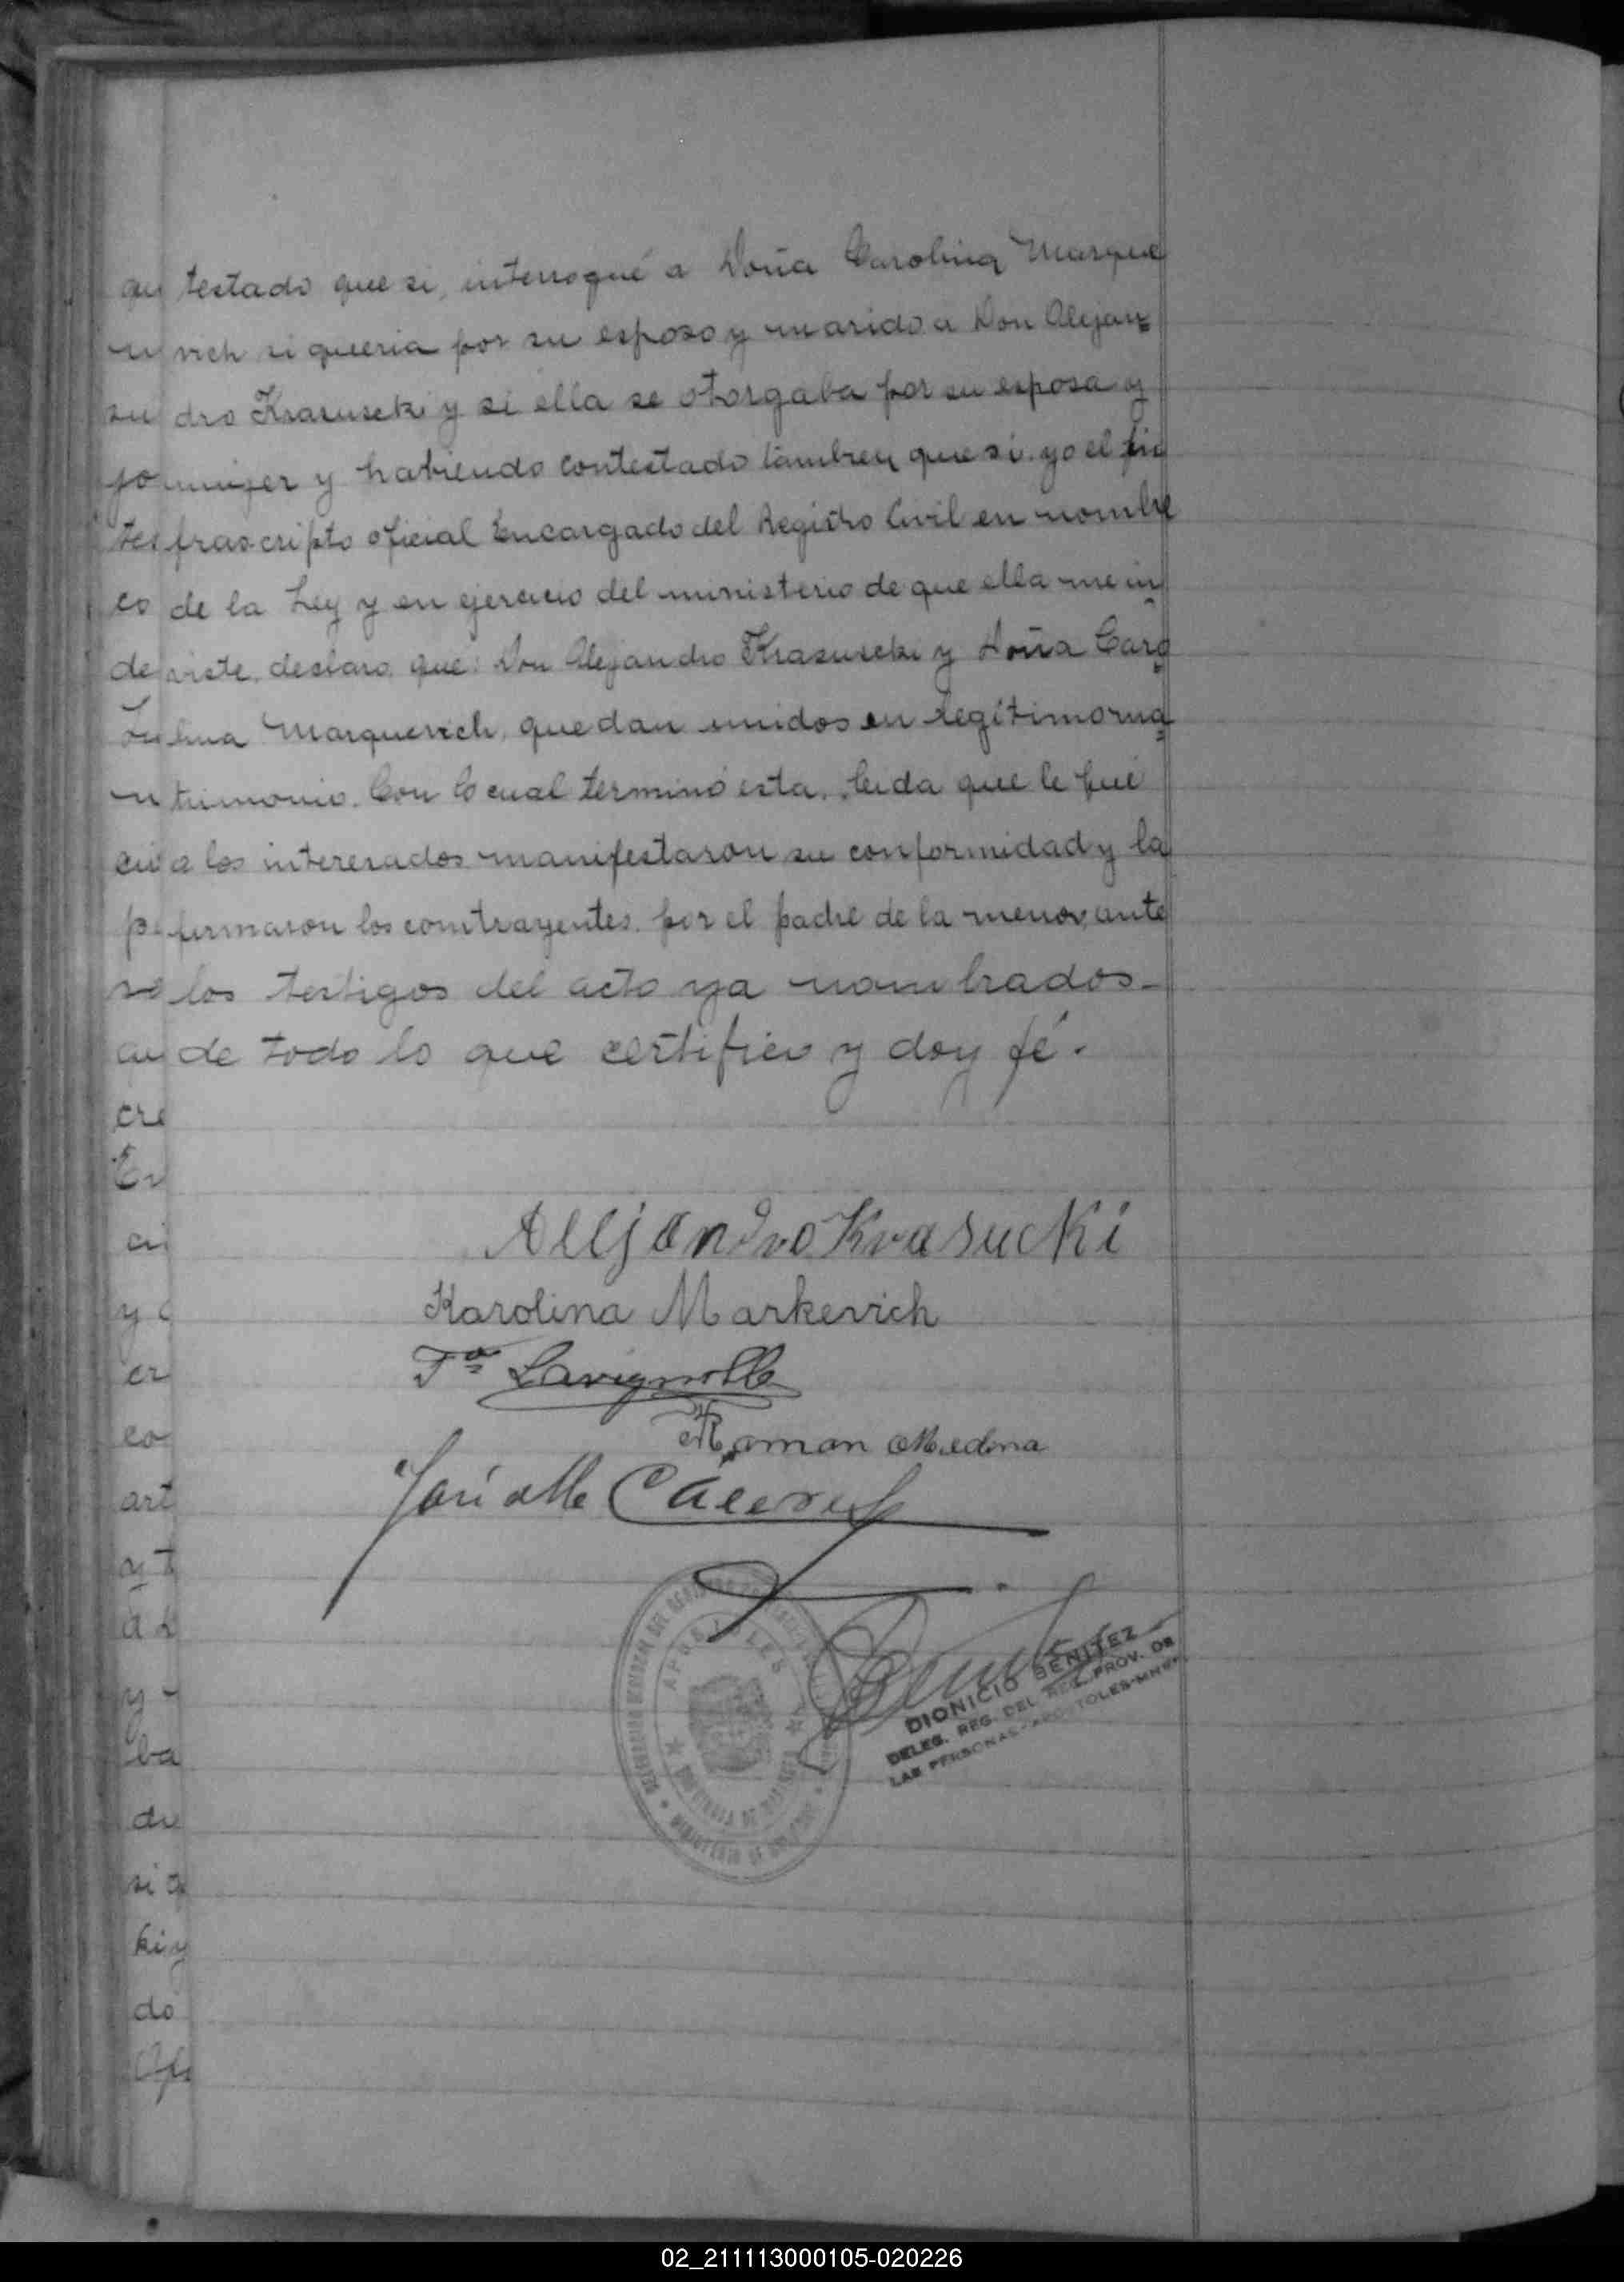 testado que si, interrogué a Doña Carolina Marque
vich si queria por su esposo y marido a Don Alejan=
dro Krasuscki y si ella se otorgaba por su esposa y
mujer y habiendo contestado tambien que si. yo el in
frascripto oficial Encargado del Registro Civil en nombre
de la Ley y en ejercicio del ministerio de que ella me in
viste, declaro, que: Don Alejandro Krasuscki y Doña Caro
lina Marquevich, quedan unidos en legítimo ma
trimonio. Con lo cual terminó esta, leida que le fué
a los interesados manifestaron su conformidad y la
firmaron los contrayentes, por el padre de la menor, ante
los testigos del acto ya nombrados-
de todo lo que certifico y doy fé.
Allejandro Krasucki
Karolina Markevich
Lavignolle
Ramon Medina
José M Cáceres
APOSTOLES
PROVINCIA DE MISIONES
MINISTERIO DE GOBIERNO
DIONICIO BENITEZ
DELEG. REG. DEL REG. PROV. DE
LAS PERSONAS - APOSTOLES-MNES.
qu
su
jo
tes
co
de
cre
En
ci
y
er
co
art
y t
a
y
ba
de
si q
ki y
do
Ofi
02_211113000105-020226